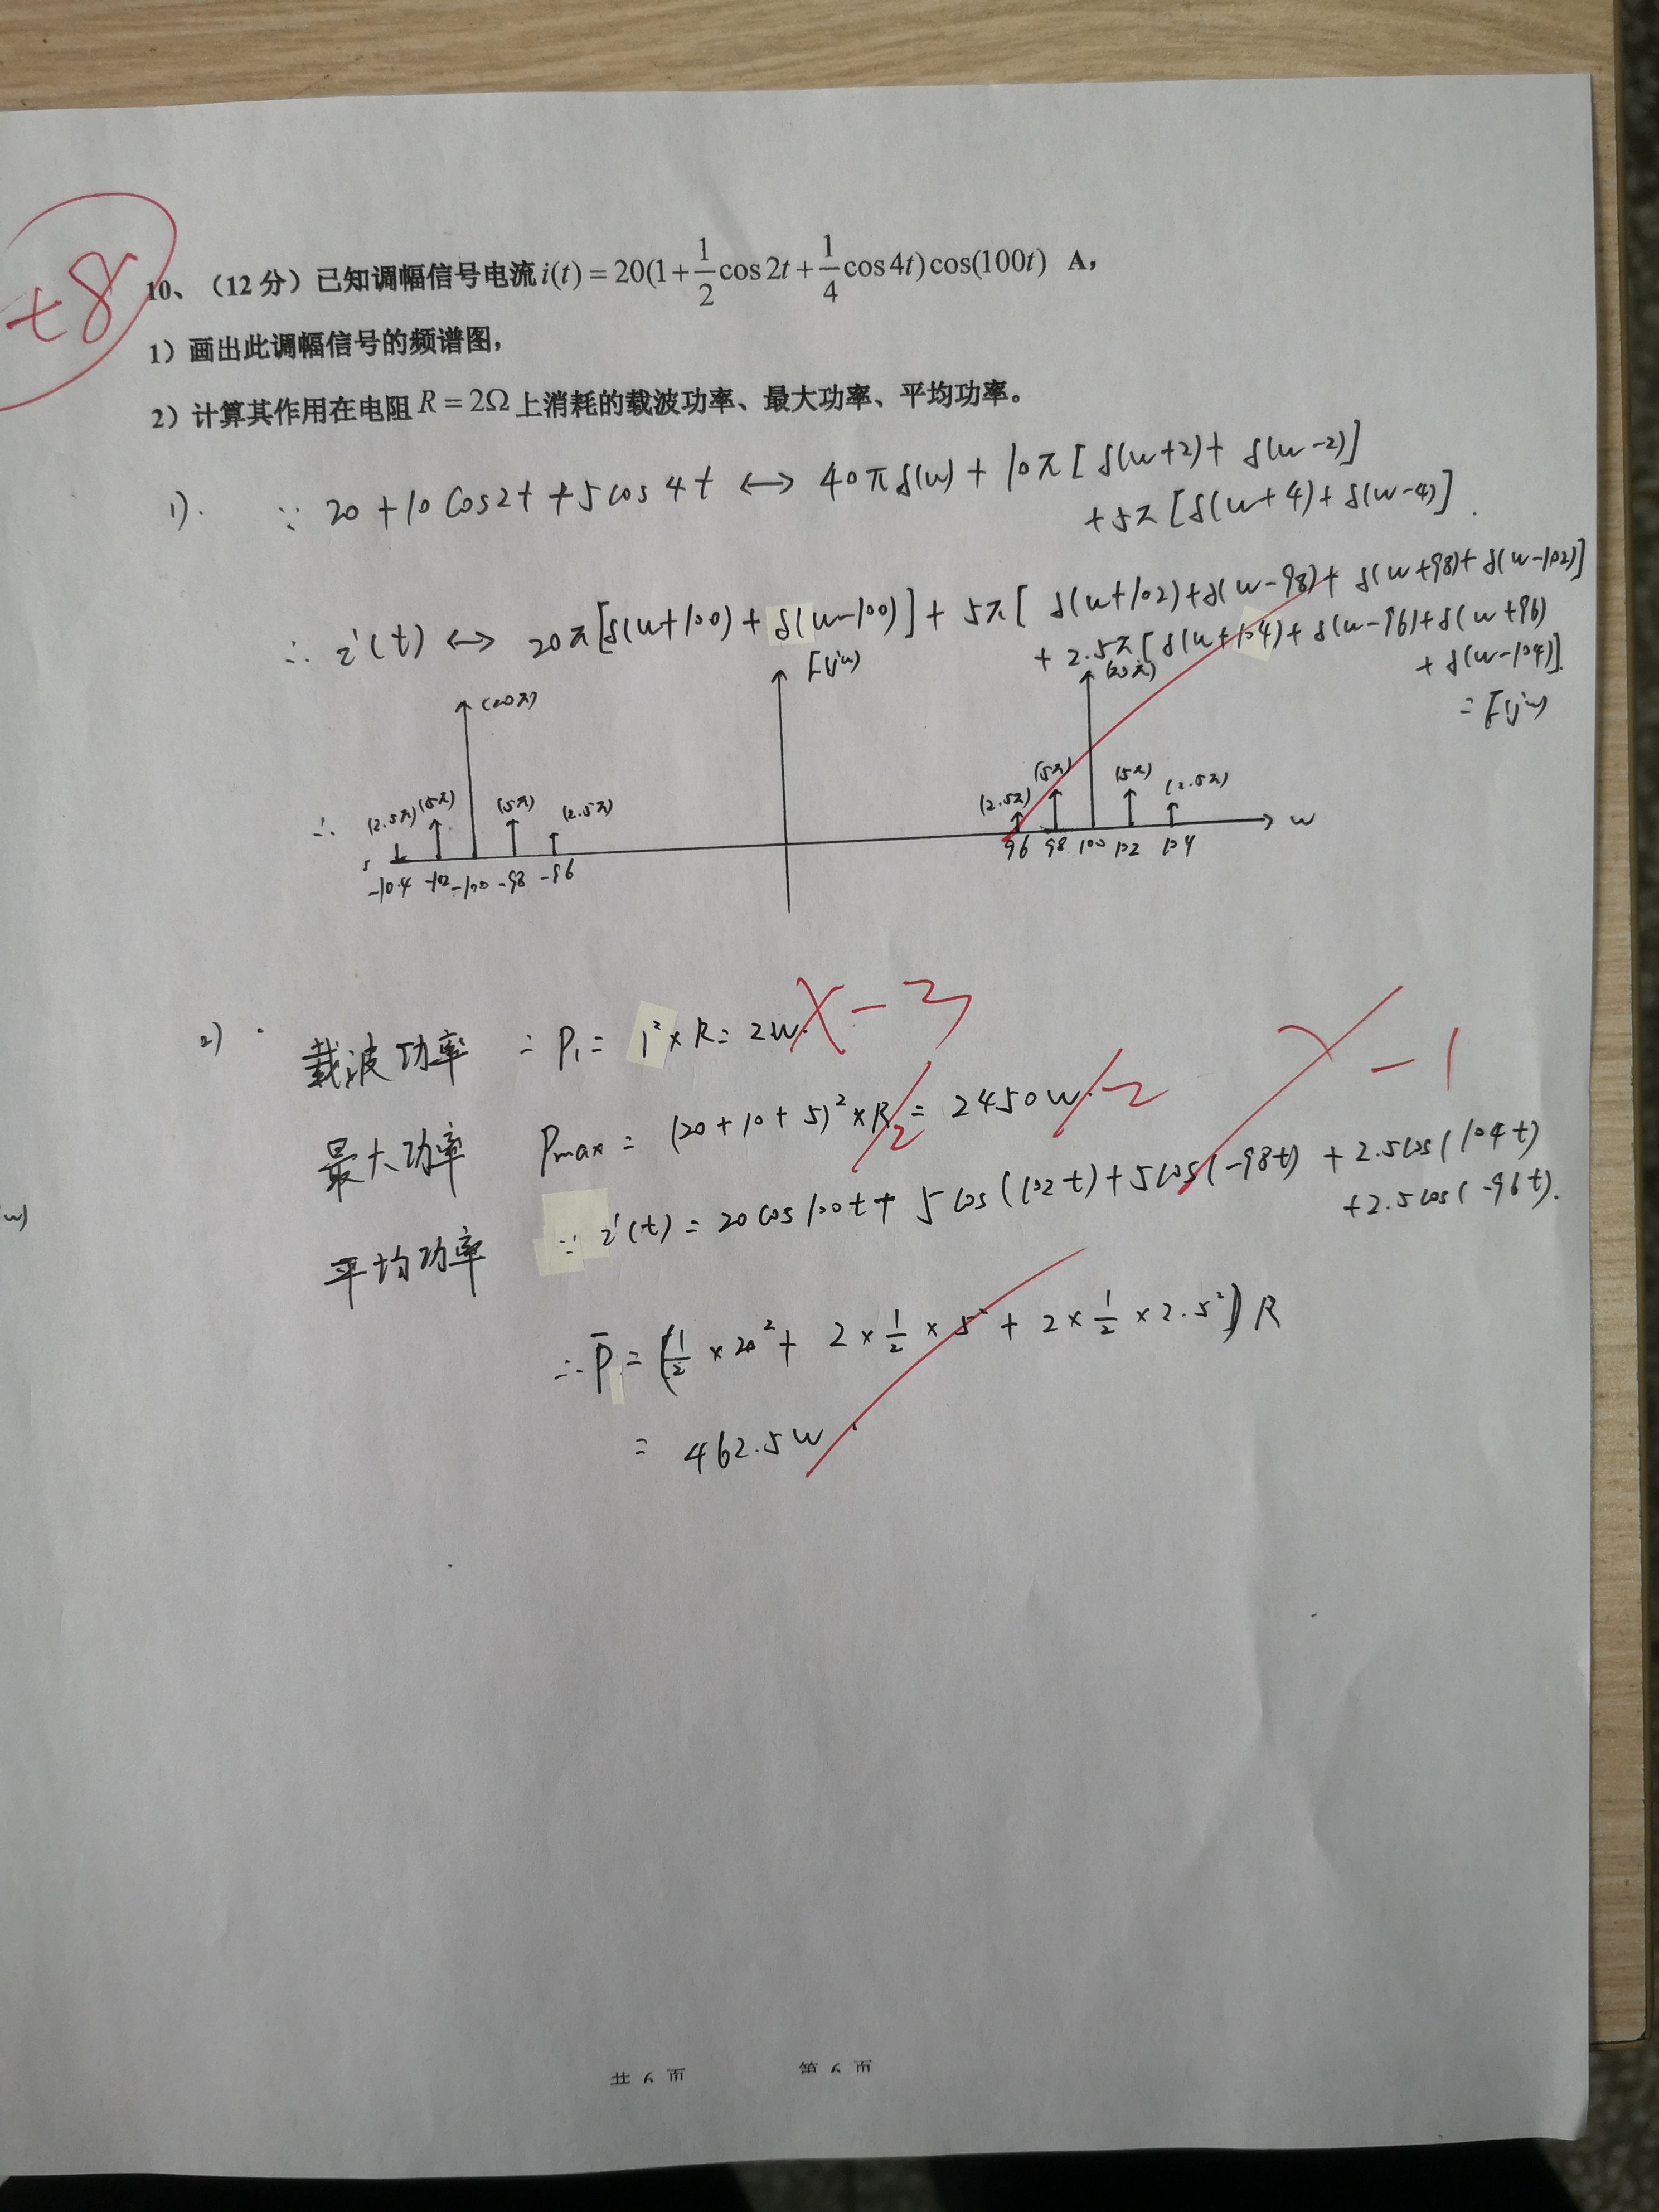 +8
10、（12 分）已知调幅信号电流 i(t) = 20(1+\frac{1}{2}cos 2t+\frac{1}{4}cos 4t)cos(100t) A，
1）画出此调幅信号的频谱图，
2）计算其作用在电阻 R = 2Ω 上消耗的载波功率、最大功率、平均功率。
1). ∵ 20 + 10 cos2t + 5 cos 4t ↔ 40πδ(w) + 10π [ δ(w+2) + δ(w-2)]
+ 5π [δ(w+4) + δ(w-4)].
∴ i(t) ↔ 20π[δ(w+100) + δ(w-100)] + 5π [ δ(w+102) + δ(w-98) + δ(w+98) + δ(w-102)]
+ 2.5π [ δ(w+104) + δ(w-96) + δ(w+96)
+ δ(w-104)].
= F(jw)
F(jw)
(20π) (20π)
(2.5π) (5π) (5π) (2.5π) (2.5π) (5π) (5π) (2.5π)
∴ w
-104 -102 -100 -98 -96 96 98 100 102 104
2) 载波功率 ∴ P₁ = 1² × R = 2W. X -3
最大功率 Pmax = (20 + 10 + 5)² × R = 2450W.
2 -2
X -1
平均功率 ∵ i(t) = 20 cos 100t + 5 cos (102t) + 5 cos (-98t) + 2.5 cos (104t)
+ 2.5 cos (-96t).
∴ P̄ = (\frac{1}{2} × 20² + 2 × \frac{1}{2} × 5² + 2 × \frac{1}{2} × 2.5²) R
= 462.5W.
w)
共 6 页 第 6 页